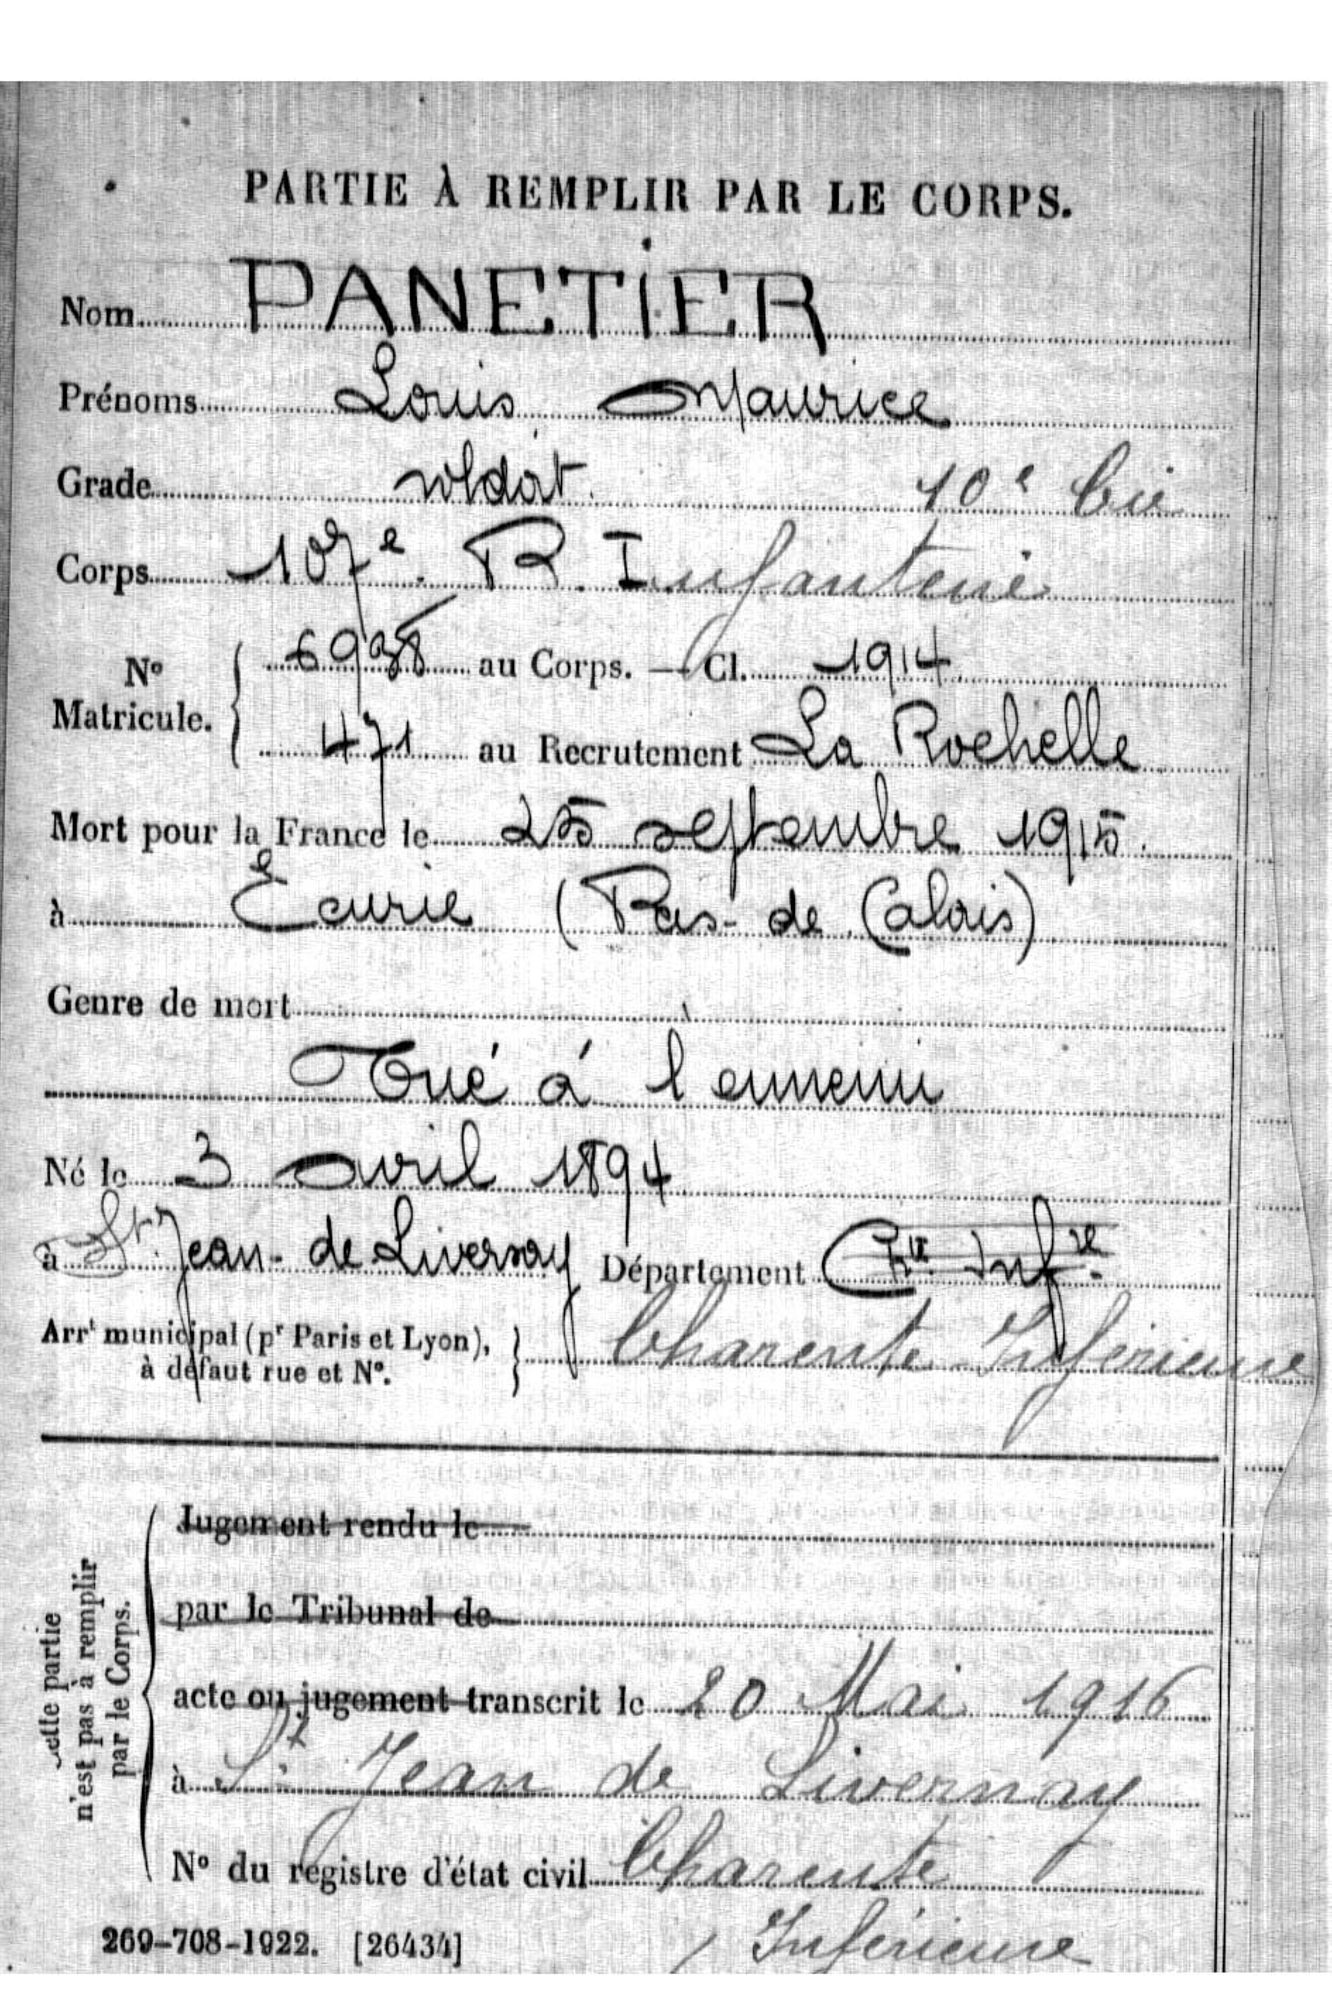 PARTIE À REMPLIR PAR LE CORPS.
Nom PANETIER
Prénoms Louis Maurice
Grade soldat 10e Cie
Corps 107e R. Infanterie
No Matricule. 6938 au Corps. — Cl. 1914
471 au Recrutement La Rochelle
Mort pour la France le 25 septembre 1915.
à Ecurie (Pas-de Calais)
Genre de mort
Tué à l'ennemi
Né le 3 avril 1894
à St. Jean-de Liversay Département Chte Infre
Arrt municipal (pr Paris et Lyon), Charente Inférieure
à défaut rue et No.
Cette partie n'est pas à remplir par le Corps.
Jugement rendu le
par le Tribunal de
acte ou jugement transcrit le 20 Mai 1916
à St. Jean de Livernay
No du registre d'état civil Charente
Inférieure
269-708-1922. [26434]